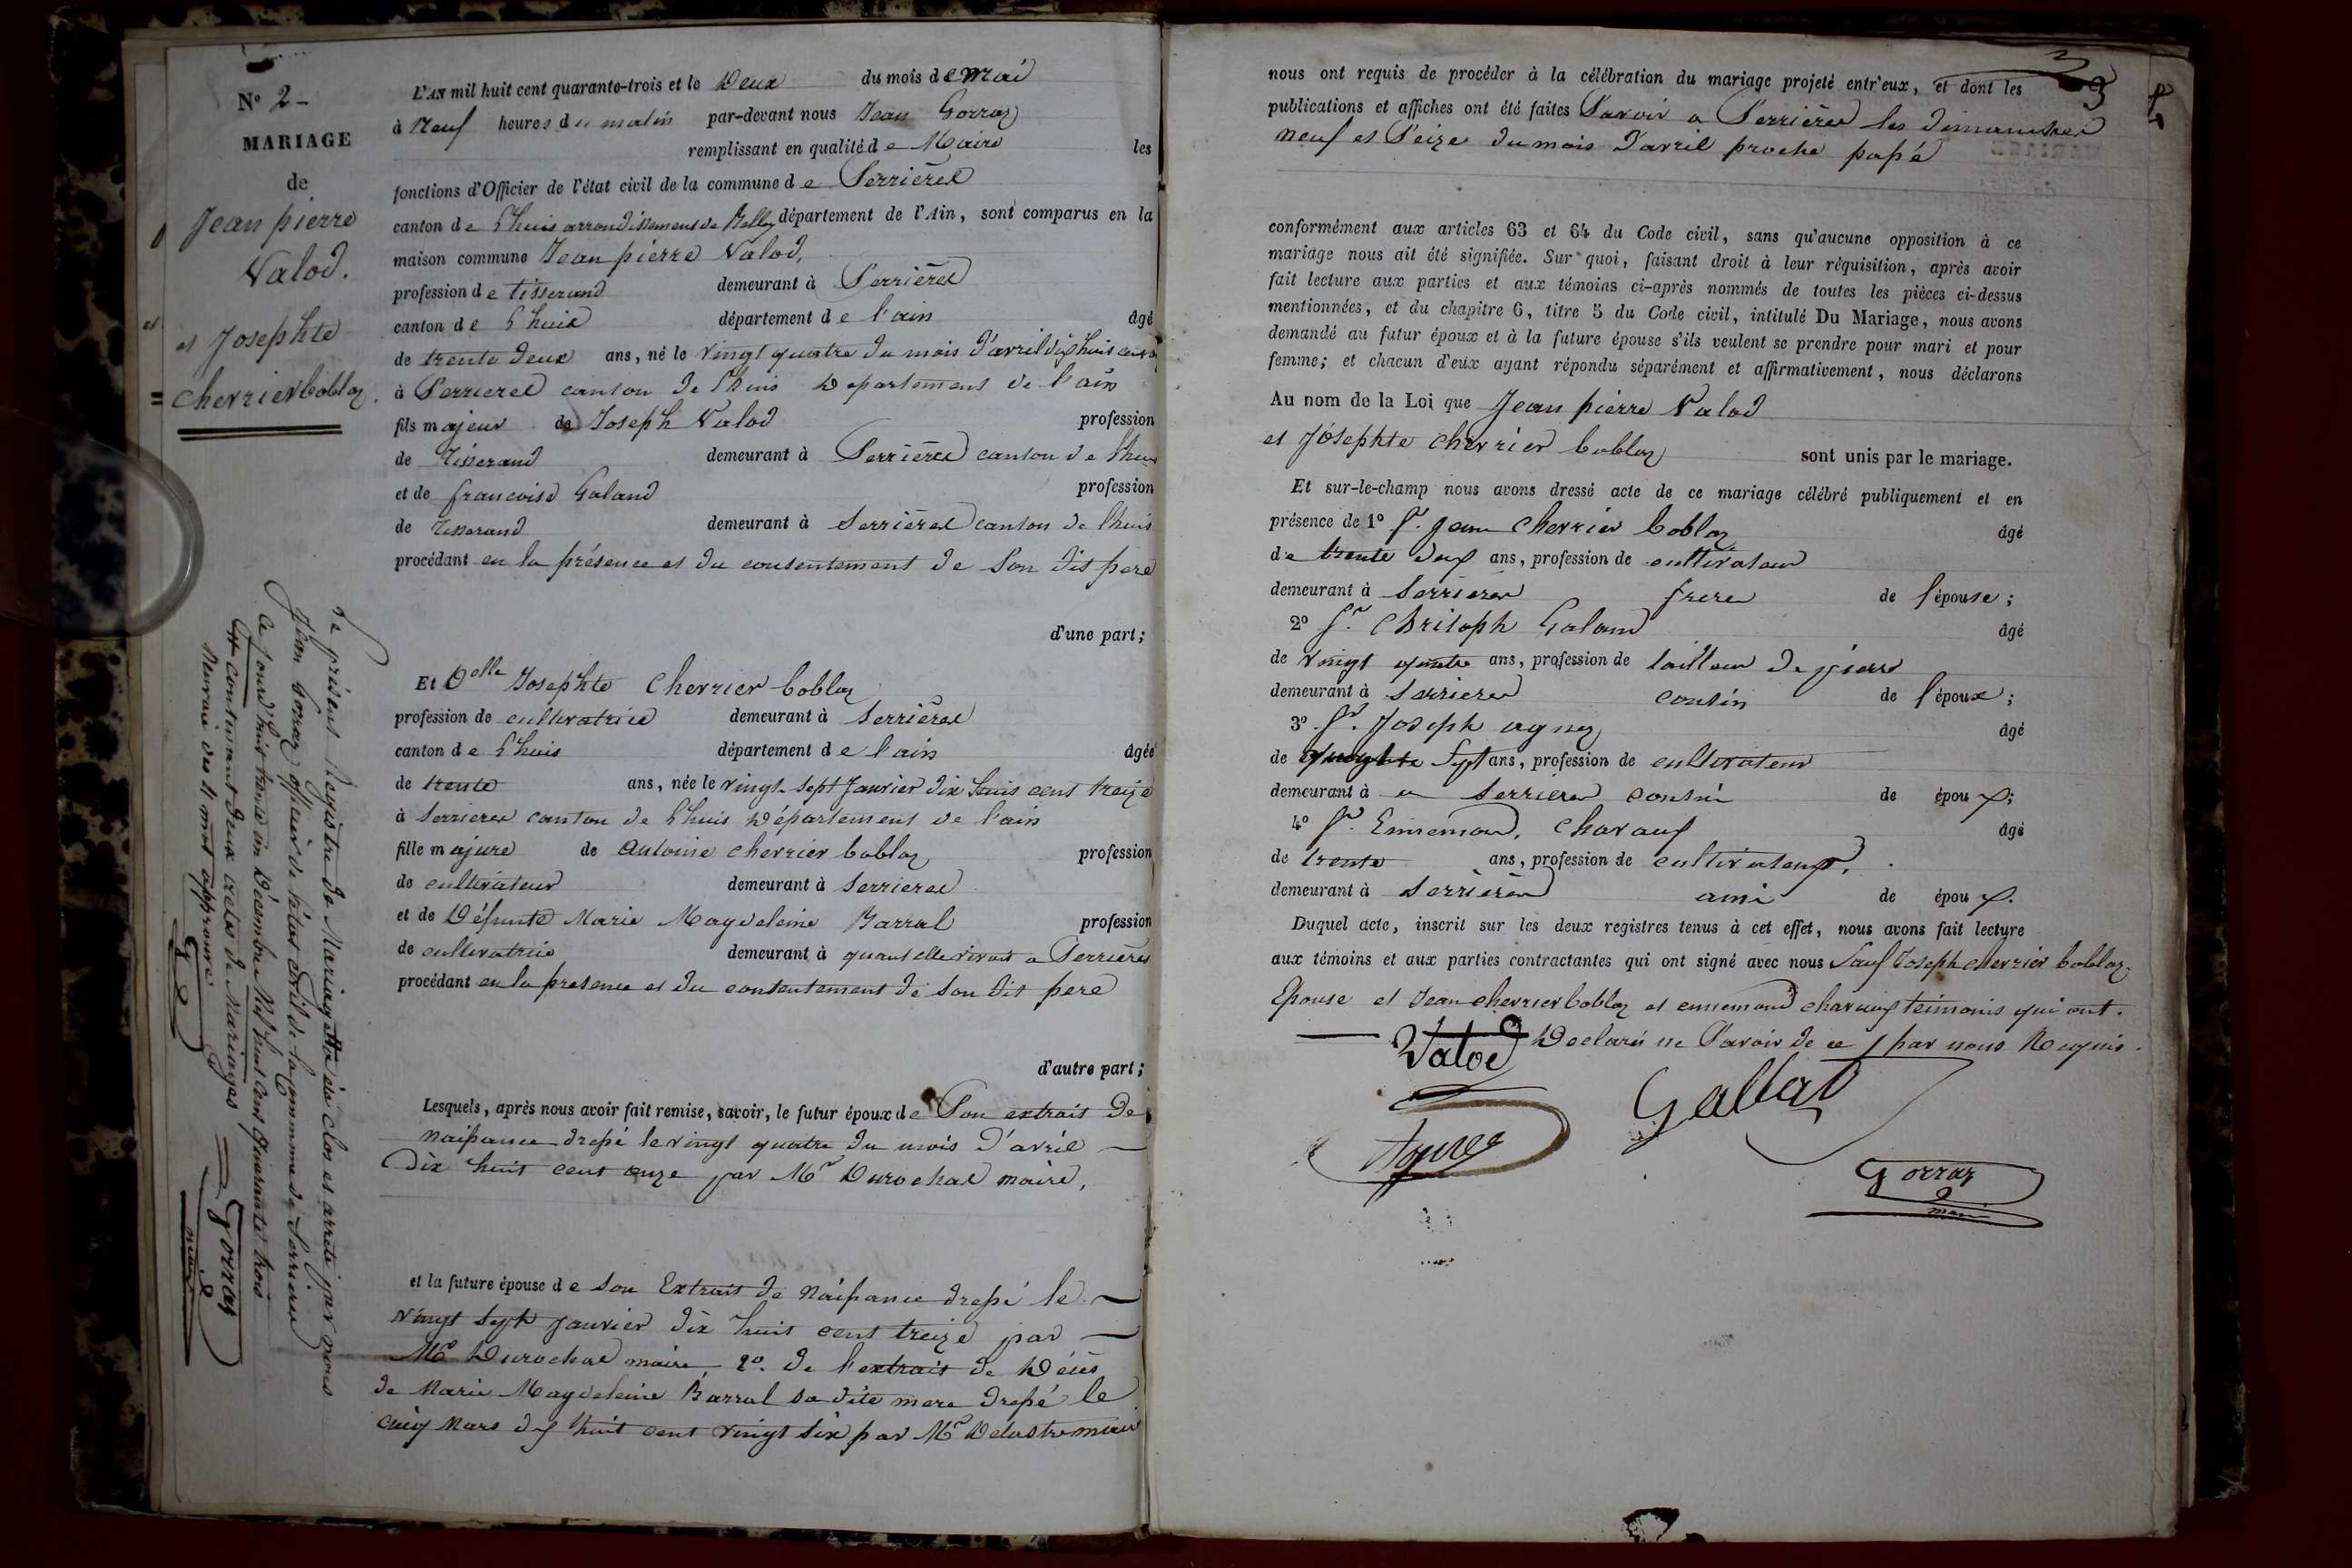 N° 2 -
MARIAGE
de
Jean pierre
Valod.
et Josephte
cherrier Cobloz.
L'AN mil huit cent quarante-trois et le Deux du mois de Mai
à Neuf heures du matin par-devant nous Jean Gorraz
remplissant en qualité de Maire les
fonctions d'Officier de l'état civil de la commune de Serrieres
canton de Lhuis arrondissement de Belley département de l'Ain, sont comparus en la
maison commune Jean pierre Valod,
profession de tisserand demeurant à Serrières
canton de Lhuis département de l'ain âgé
de trente deux ans, né le vingt quatre du mois d'avril dix huit cent
à Serrieres canton de Lhuis Departement de l'ain
fils majeur de Joseph Valod profession
de Tisserand demeurant à Serrières canton de Lhuis
et de francoise Galand profession
de Tisserand demeurant à Serrières canton de Lhuis
procédant en la présence et du consentement de Son dit pere
d'une part;
Et Delle Josephte Cherrier Cobloz
profession de cultivatrice demeurant à Serrières
canton de Lhuis département de l'ain âgée
de trente ans, née le vingt sept Janvier dix huit cent treize
à Serrieres canton de Lhuis Département de l'ain
fille majure de Antoine cherrier Cobloz profession
de cultivateur demeurant à Serrieres
et de Défunte Marie Magdeleine Barral profession
de cultivatrice demeurant à quant elle vivait a Serrières
procédant en la presence et du consentement de Son dit pere
d'autre part;
Lesquels, après nous avoir fait remise, savoir, le futur époux de Son extrait De
naissance dressé le vingt quatre du mois d'avril
Dix huit cent onze par Mr Durochat maire,
et la future épouse de Son Extrait de Naissance dressé le
vingt sept Janvier dix huit cent treize par
Mr Durochat maire 2°. de l'extrait de Décès
de Marie Magdeleine Barral sa dite mere dressé le
cinq Mars dix huit cent vingt six par Mr
Le présent Registre de Mariage a été clos et arrete par nous
Jean Gorraz officier de l'état civil de la Commune de Serrieres
Ce jourd'huit trente un Décembre Mil huit Cent quarante trois
contenant deux actes de Mariages
des mot approuvé
Gorraz
maire
3
nous ont requis de procéder à la célébration du mariage projeté entr'eux, et dont les
publications et affiches ont été faites Savoir a Serrieres les dimanches
neuf et Seize du mois d'avril proche passé
conformément aux articles 63 et 64 du Code civil, sans qu'aucune opposition à ce
mariage nous ait été signifiée. Sur quoi, faisant droit à leur réquisition, après avoir
fait lecture aux parties et aux témoins ci-après nommés de toutes les pièces ci-dessus
mentionnées, et du chapitre 6, titre 5 du Code civil, intitulé Du Mariage, nous avons
demandé au futur époux et à la future épouse s'ils veulent se prendre pour mari et pour
femme; et chacun d'eux ayant répondu séparément et affirmativement, nous déclarons
Au nom de la Loi que Jean pierre Valod
et Josephte cherrier Cobloz sont unis par le mariage.
Et sur-le-champ nous avons dressé acte de ce mariage célébré publiquement et en
présence de 1° Sr. Jean Cherrier Cobloz âgé
de trente deux ans, profession de cultivateur
demeurant à Serrieres frere de l'épouse;
2° Sr. Christoph Galand âgé
de vingt quatre ans, profession de tailleur de pierre
demeurant à Serrieres cousin de l'époux;
3° Sr. Joseph agnez âgé
de sept ans, profession de cultivateur
demeurant à a Serrieres cousin de époux;
4° Sr. Ennemond. Charauf âgé
de trente ans, profession de cultivateur,
demeurant à Serrières ami de époux.
Duquel acte, inscrit sur les deux registres tenus à cet effet, nous avons fait lecture
aux témoins et aux parties contractantes qui ont signé avec nous Sauf Joseph cherrier Cobloz
Epouse et Jean cherrier Cobloz et ennemond charauf teimoins qui ont.
Declarés ne Savoir de ce par nous Requis.
Valod
Gallad
Agnez
Gorraz
maire